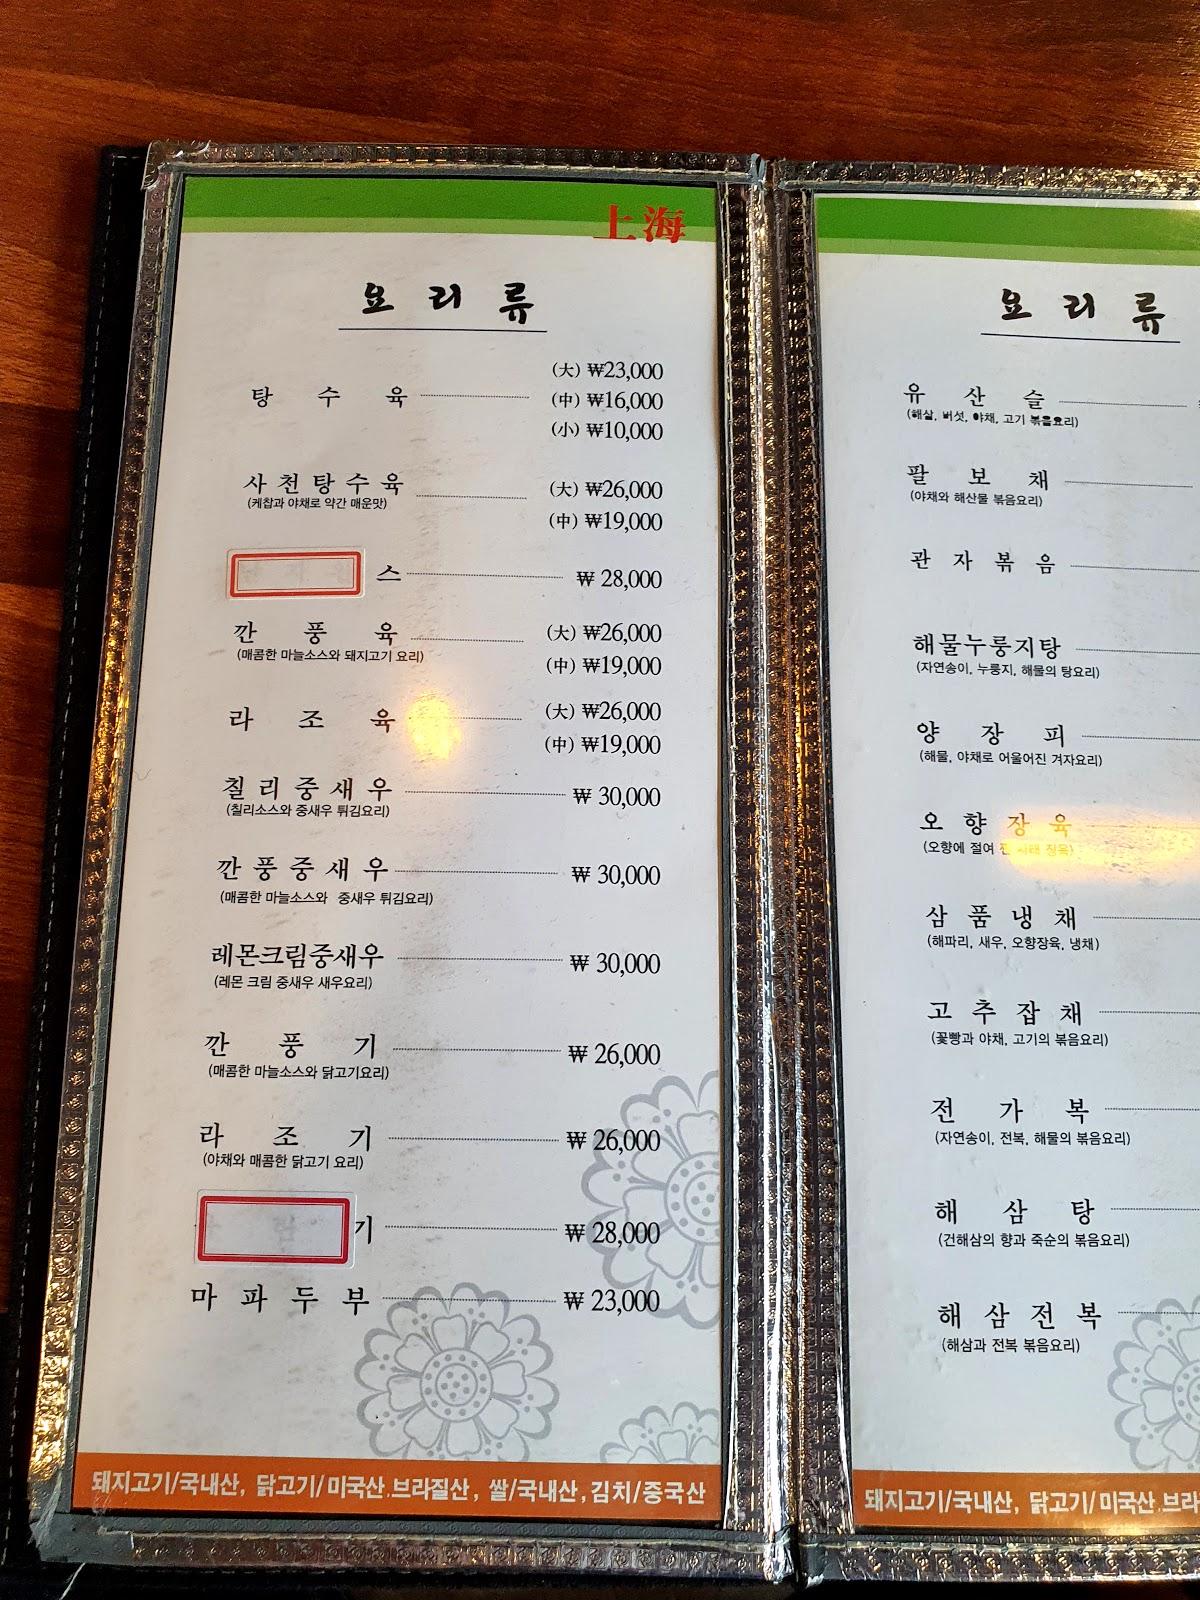 上海
요리류
탕수육 (大) ₩23,000
(中) ₩16,000
(小) ₩10,000
사천탕수육 (大) ₩26,000
(케찹과 야채로 약간 매운맛)
(中) ₩19,000
스 ₩ 28,000
깐풍육 (大) ₩26,000
(매콤한 마늘소스와 돼지고기 요리)
(中) ₩19,000
라조육 (大) ₩26,000
(中) ₩19,000
칠리중새우 ₩ 30,000
(칠리소스와 중새우 튀김요리)
깐풍중새우 ₩ 30,000
(매콤한 마늘소스와 중새우 튀김요리)
레몬크림중새우 ₩ 30,000
(레몬 크림 중새우 새우요리)
깐풍기 ₩ 26,000
(매콤한 마늘소스와 닭고기요리)
라조기 ₩ 26,000
(야채와 매콤한 닭고기 요리)
기 ₩ 28,000
마파두부 ₩ 23,000
돼지고기/국내산, 닭고기/미국산.브라질산, 쌀/국내산,김치/중국산
요리류
유산슬
(해살, 버섯, 야채, 고기 볶음요리)
팔보채
(야채와 해산물 볶음요리)
관자볶음
해물누룽지탕
(자연송이, 누룽지, 해물의 탕요리)
양장피
(해물, 야채로 어울어진 겨자요리)
오향장육
(오향에 절여 장육)
삼품냉채
(해파리, 새우, 오향장육, 냉채)
고추잡채
(꽃빵과 야채, 고기의 볶음요리)
전가복
(자연송이, 전복, 해물의 볶음요리)
해삼탕
(건해삼의 향과 죽순의 볶음요리)
해삼전복
(해삼과 전복 볶음요리)
돼지고기/국내산, 닭고기/미국산.브라